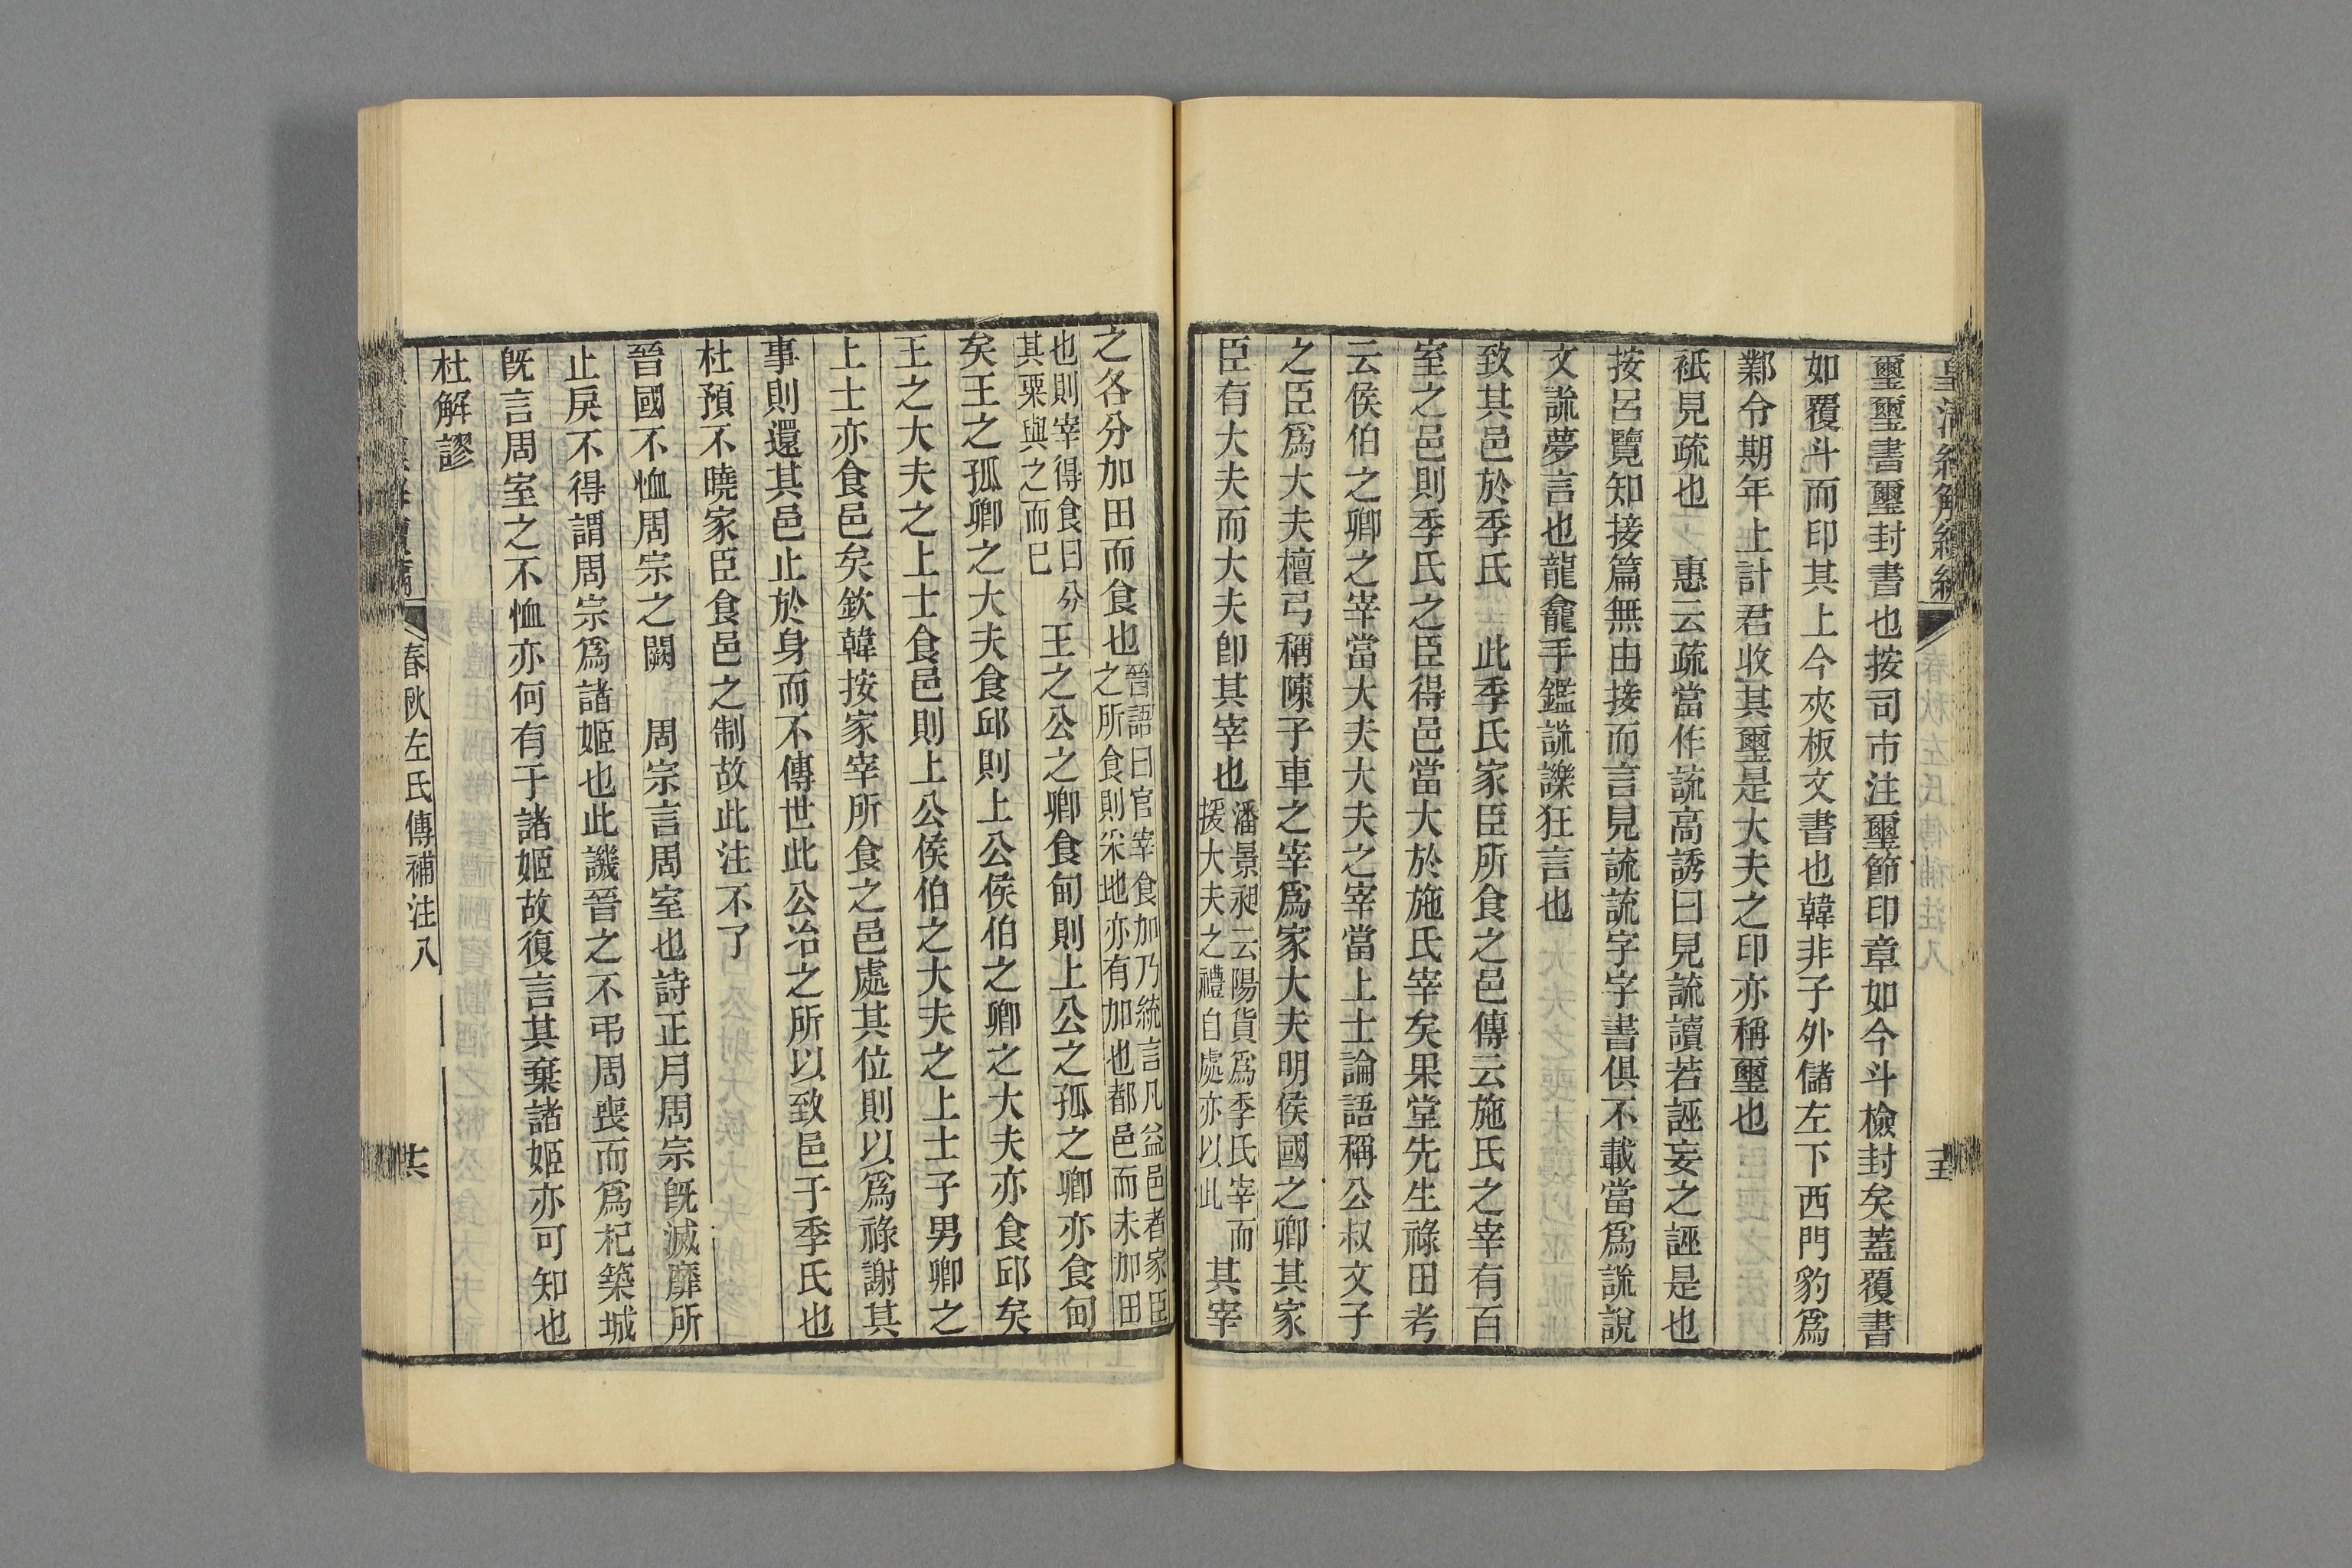 皇清經解續編
春秋左氏傳補注八
璽璽書璽封書也按司市注璽節印章如今斗檢封矣蓋覆書
如覆斗而印其上今夾板文書也韓非子外儲左下西門豹爲
鄴令期年上計君收其璽是大夫之印亦稱璽也
祇見疏也 惠云疏當作䟽高誘曰見䟽讀若誣妄之誣是也
按呂覽知接篇無由接而言見䟽䟽字字書俱不載當爲謊說
文謊夢言也龍龕手鑑謊譟狂言也
致其邑於季氏 此季氏家臣所食之邑傳云施氏之宰有百
室之邑則季氏之臣得邑當大於施氏宰矣果堂先生祿田考
云侯伯之卿之宰當大夫大夫之宰當上士論語稱公叔文子
之臣爲大夫檀弓稱陳子車之宰爲家大夫明侯國之卿其家
臣有大夫而大夫卽其宰也
潘景昶云陽貨爲季氏宰而
援大夫之禮自處亦以此
其宰
之各分加田而食也
晉語曰官宰食加乃統言凡益邑者家臣
之所食則采地亦有加也都邑而未加田
也則宰得食曰分
其粟與之而巳
王之公之卿食甸則上公之孤之卿亦食甸
矣王之孤卿之大夫食邱則上公侯伯之卿之大夫亦食邱矣
王之大夫之上士食邑則上公侯伯之大夫之上士子男卿之
上士亦食邑矣欽韓按家宰所食之邑處其位則以爲祿謝其
事則還其邑止於身而不傳世此公冶之所以致邑于季氏也
杜預不曉家臣食邑之制故此注不了
晉國不恤周宗之闕 周宗言周室也詩正月周宗旣滅靡所
止戾不得謂周宗爲諸姬也此譏晉之不弔周喪而爲杞築城
旣言周室之不恤亦何有于諸姬故復言其棄諸姬亦可知也
杜解謬
春秋左氏傳補注八